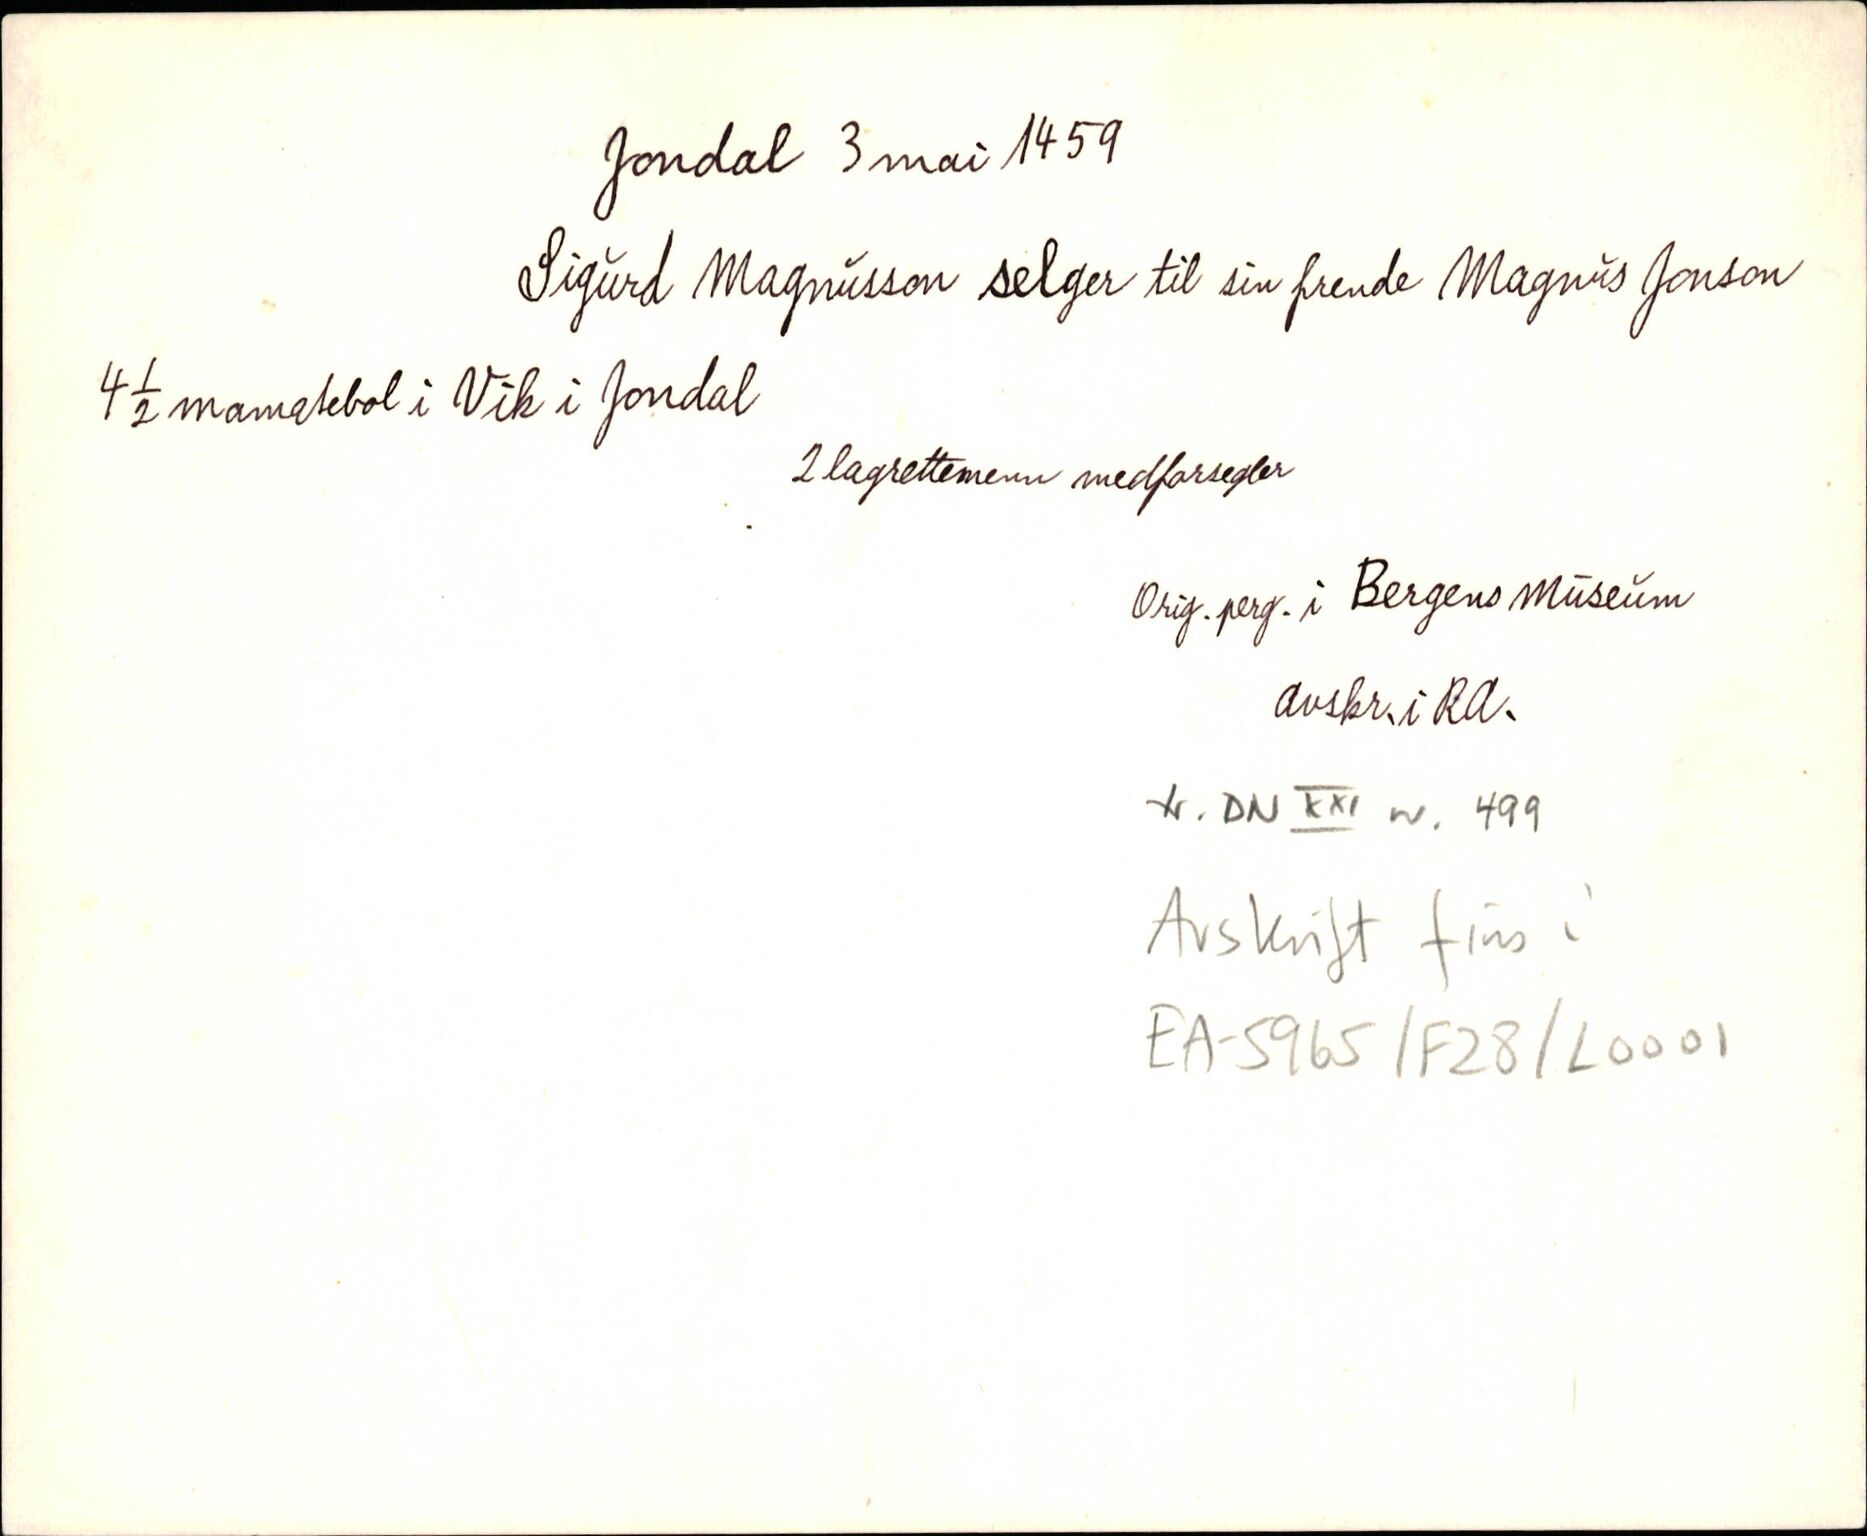 Jondal 3 mai 1459
Sigurd Magnusson selger til sin frende Magnus Jonson
4 1/2 mamatebol i Vik i Jondal
2 lagrettemenn medforsegler
Orig. perg. i Bergens Museum
avskr. i RA.
tr. DN XXI nr. 499
Avskrift fins i
EA-5965/F28/L0001